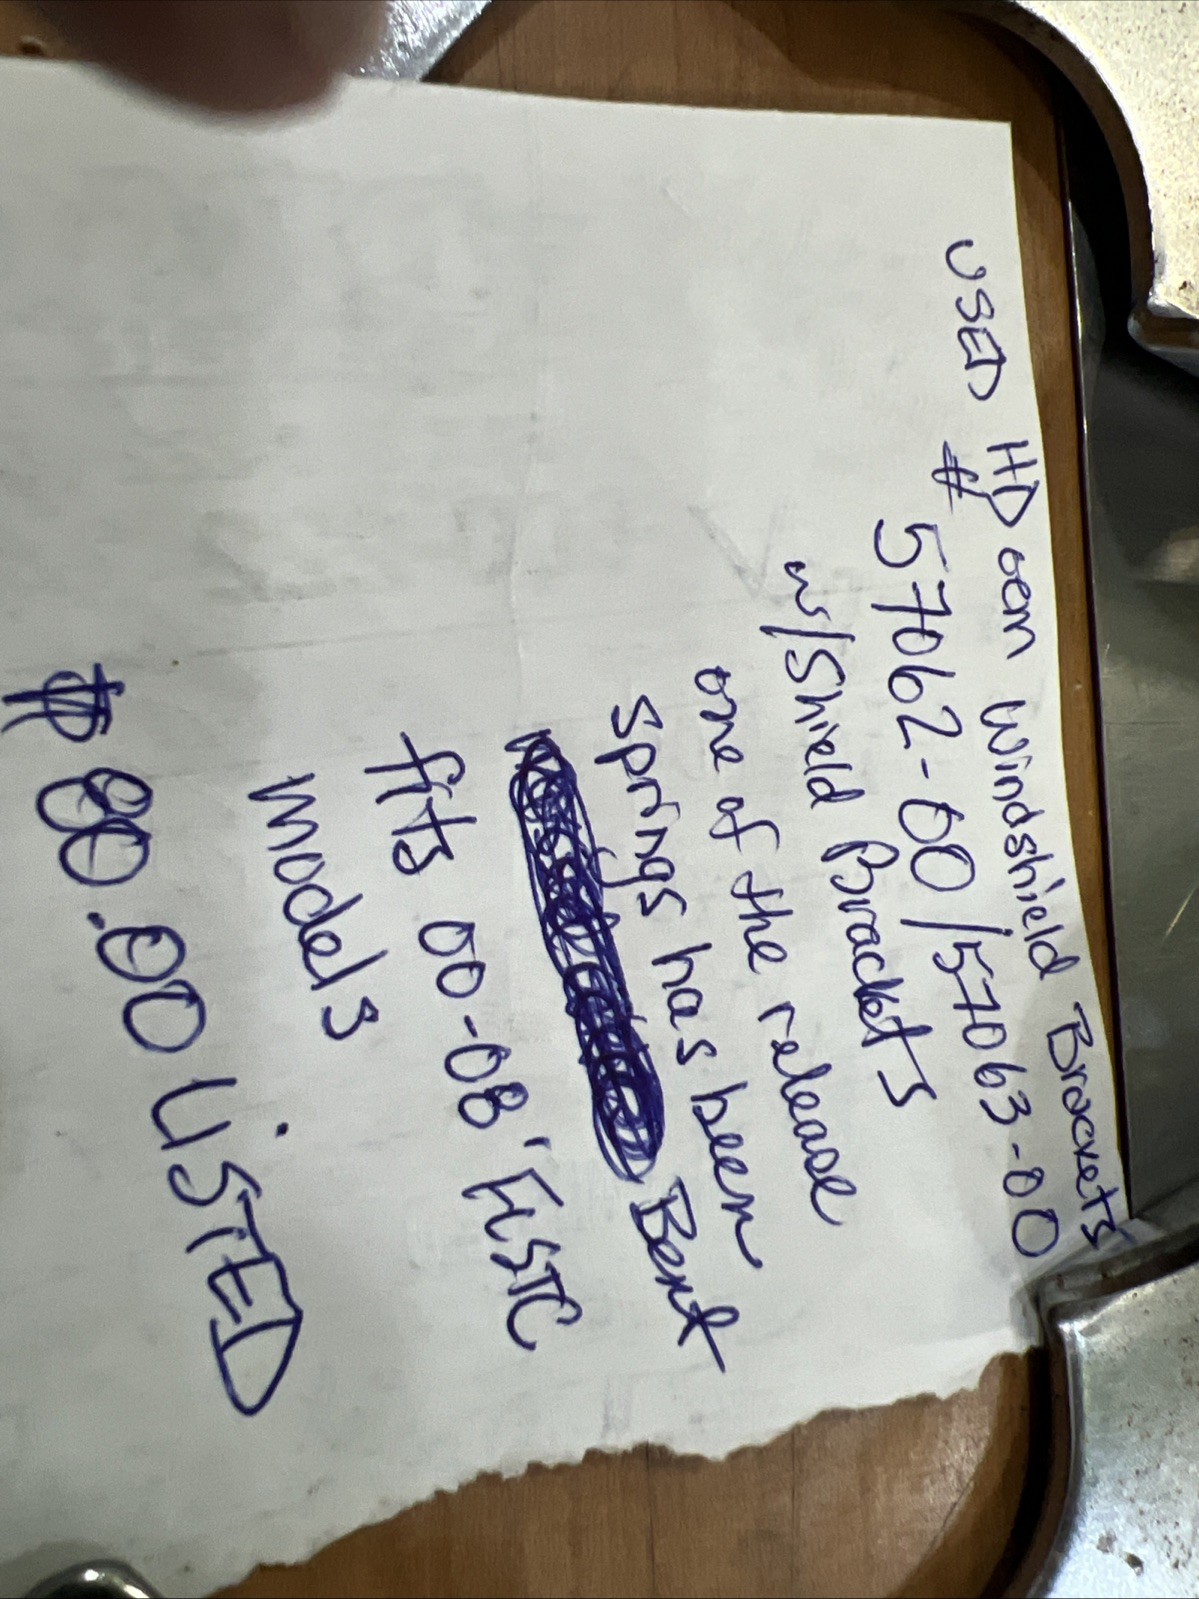 USED HD oem Windshield Brackets
# 57062-00/57063-00
w/Shield Brackets
one of the release
springs has been
Bent
fits 00-08' FLSTC
models
$80.00 LiSTED